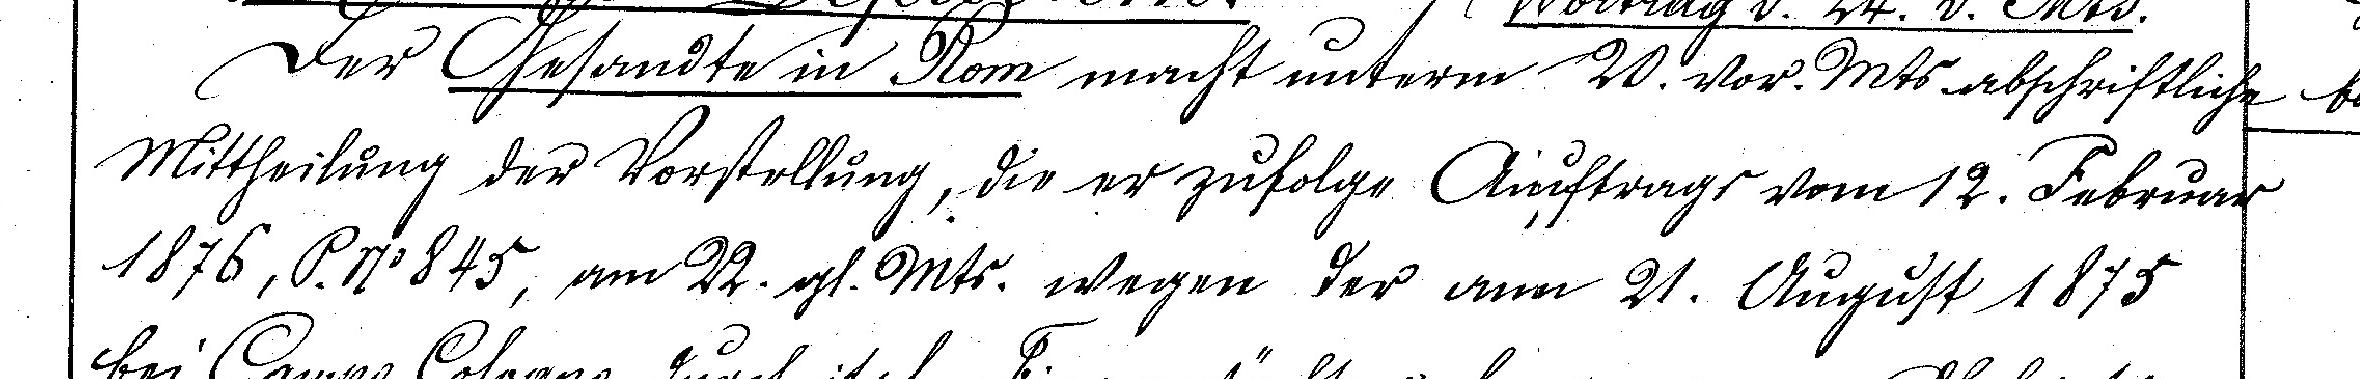 Vortrag v. 24. d. Mts.
Der Gesandte in Rom macht unterm 20. vor. Mts. abschriftliche
Mittheilung der Vorstellung, die er zufolge Auftrags vom 12. Februar
1876, P. No 845, am 22. gl. Mts. wegen der am 21. August 1875
bei Campo Cologno durch ital.